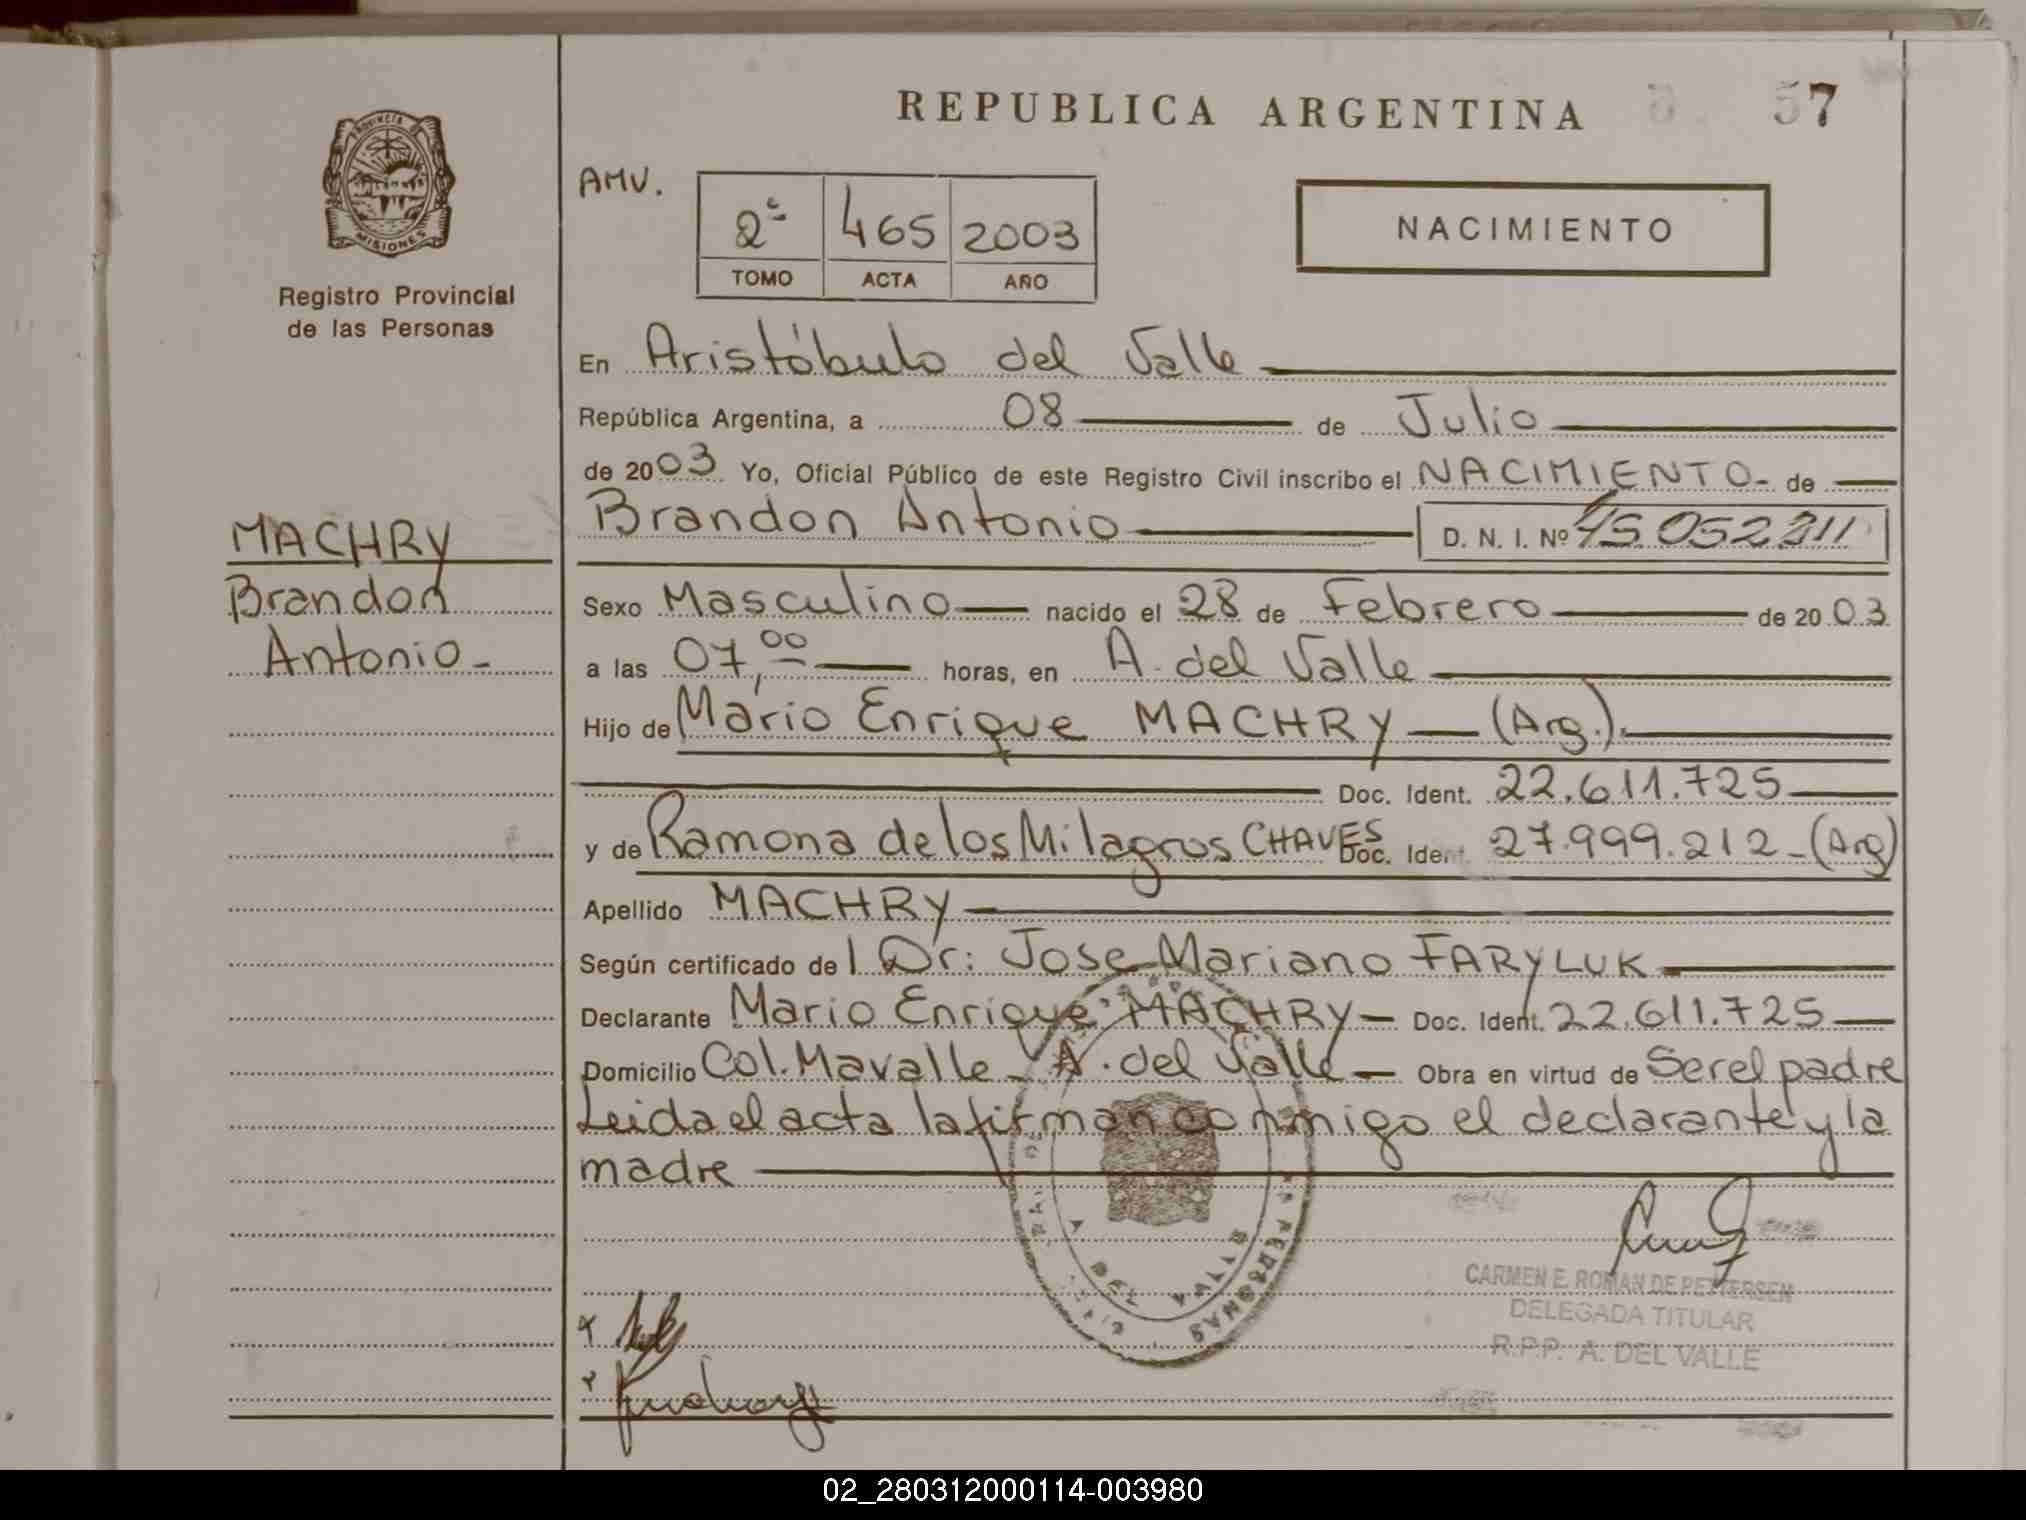 REPUBLICA ARGENTINA
57
PROVINCIA DE
MISIONES
Registro Provincial
de las Personas
AMV.
2º 465 2003
TOMO ACTA AÑO
NACIMIENTO
En Aristóbulo del Valle
República Argentina, a 08 de Julio
de 2003 Yo, Oficial Público de este Registro Civil inscribo el NACIMIENTO- de
Brandon Antonio D. N. I. Nº 45.052211
MACHRY
Brandon
Antonio-
Sexo Masculino nacido el 28 de Febrero de 2003
a las 07,00 horas, en A. del Valle
Hijo de Mario Enrique MACHRY (Arg.).
Doc. Ident. 22.611.725
y de Ramona de los Milagros CHAVES Doc. Ident. 27.999.212-(Arg)
Apellido MACHRY
Según certificado del Dr: Jose Mariano FARYLUK
Declarante Mario Enrique MACHRY Doc. Ident. 22.611.725
Domicilio Col. Mavalle - A. del Valle Obra en virtud de Ser el padre
Leida el acta la firman conmigo el declarante y la
madre
PERSONAS
A DEL VALLE
CARMEN E. ROMAN DE PETTERSEN
DELEGADA TITULAR
R.P.P. A. DEL VALLE
02_280312000114-003980